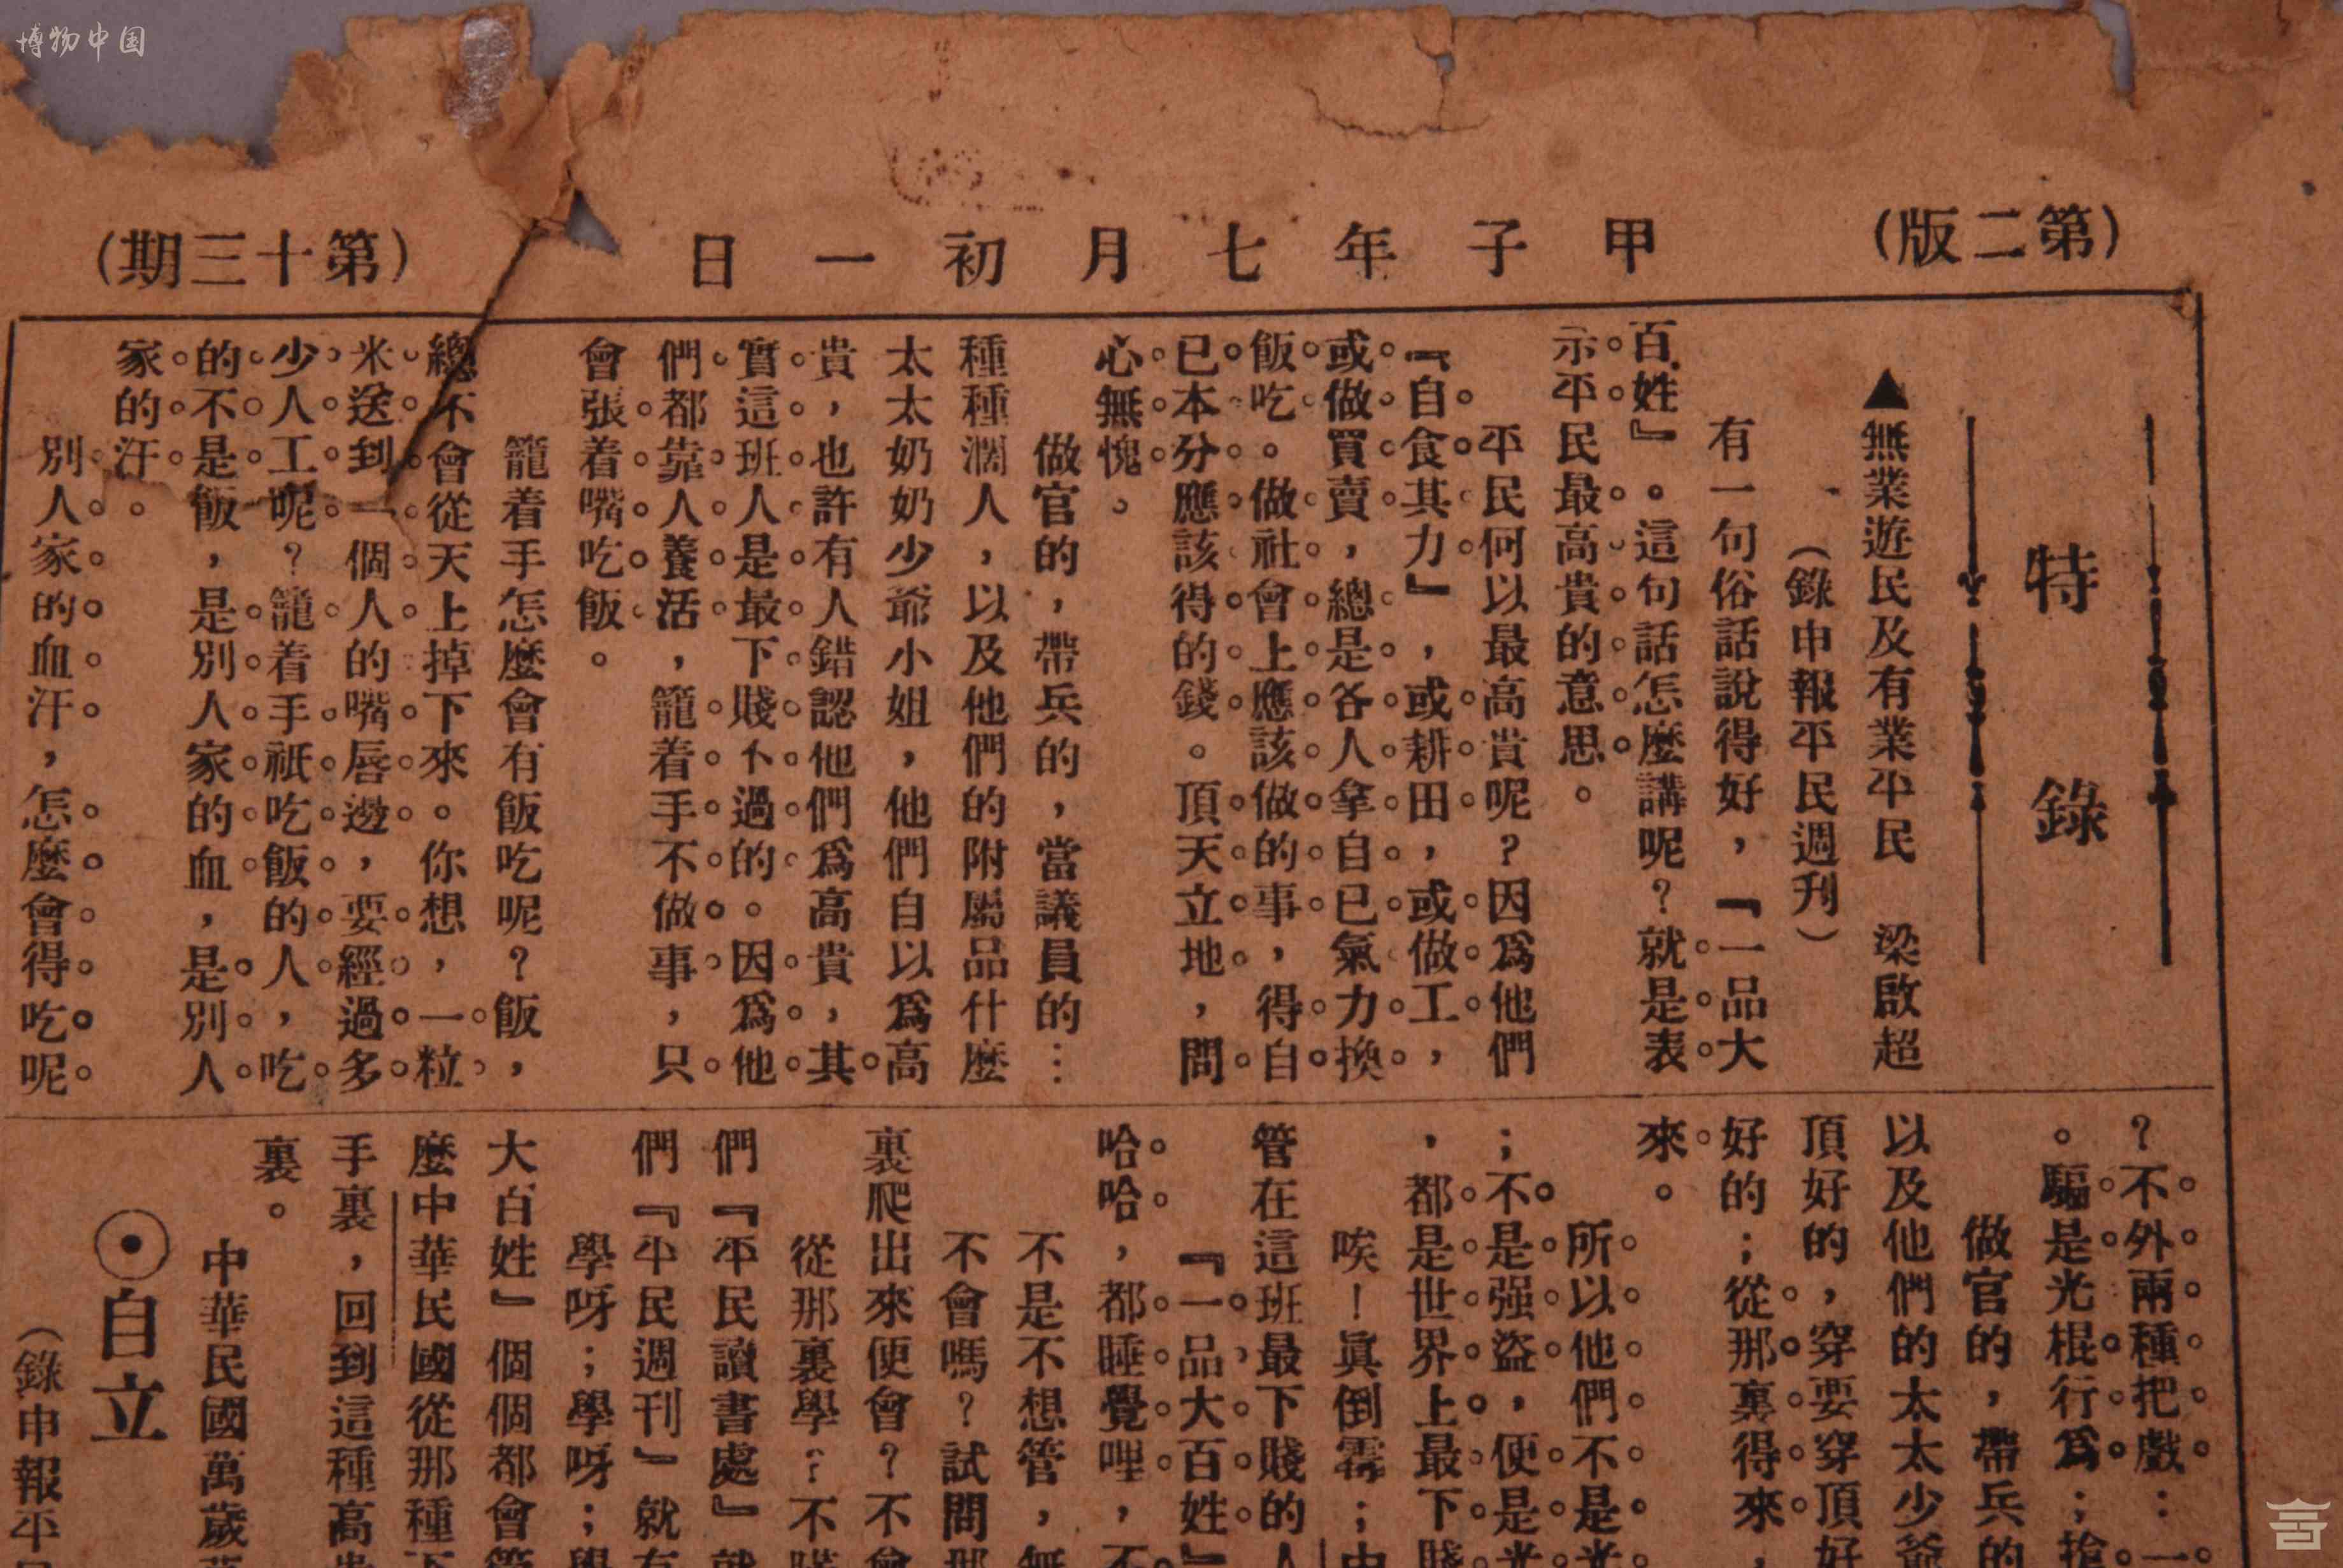 博物中国
（第二版）
甲子年七月初一日
（第十三期）
特錄
▲無業遊民及有業平民　梁啟超
（錄申報平民週刊）
有一句俗話說得好，『一品大
百姓』。這句話怎麼講呢？就是表
示平民最高貴的意思。
平民何以最高貴呢？因爲他們
『自食其力』，或耕田，或做工，
或做買賣，總是各人拿自已氣力換
飯吃。做社會上應該做的事，得自
已本分應該得的錢。頂天立地，問
心無愧。
做官的，帶兵的，當議員的…
種種濶人，以及他們的附屬品什麼
太太奶奶少爺小姐，他們自以爲高
貴，也許有人錯認他們爲高貴，其
實這班人是最下賤不過的。因爲他
們都靠人養活，籠着手不做事，只
會張着嘴吃飯。
籠着手怎麼會有飯吃呢？飯，
總不會從天上掉下來。你想，一粒
米送到一個人的嘴唇邊，要經過多
少人工呢？籠着手祇吃飯的人，吃
的不是飯，是別人家的血，是別人
家的汗。
別人家的血汗，怎麼會得吃呢
？不外兩種把戲：一
。騙是光棍行爲；搶
做官的，帶兵的
以及他們的太太少爺
頂好的，穿要穿頂好
好的；從那裏得來，
來。
所以他們不是光
；不是强盜，便是光
，都是世界上最下賤
唉！眞倒霉；中
管在這班最下賤的人
『一品大百姓』
哈哈，都睡覺哩，不
不是不想管，無
不會嗎？試問那
裏爬出來便會？不會
從那裏學？不
們『平民讀書處』就
們『平民週刊』就有
學呀；學呀；學
大百姓』個個都會管
麼中華民國從那種下
手裏，回到這種高貴
裏。
中華民國萬歲
⊙自立
（錄申報平民